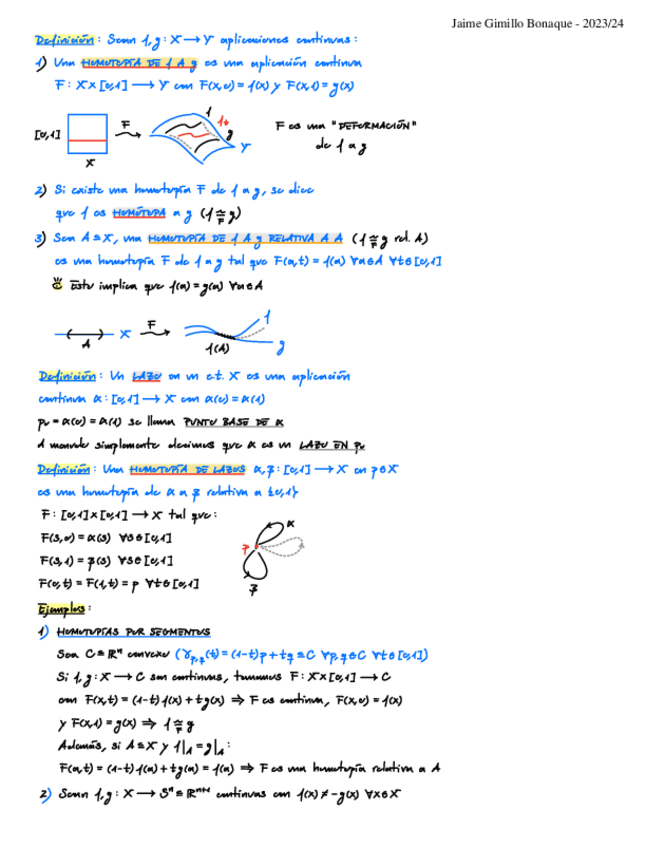 Jaime Gimillo Bonaque - 2023/24
Definición: Sean f, g: X ⟶ Y aplicaciones continuas:
1) Una HOMOTOPÍA DE f A g es una aplicación continua
F: X×[0,1] ⟶ Y con F(x,0) = f(x) y F(x,1) = g(x)
[0,1] F X f ft g Y
F es una "DEFORMACIÓN"
de f a g
2) Si existe una homotopía F de f a g, se dice
que f es HOMÓTOPA a g (f ≃_F g)
3) Sea A ⊆ X, una HOMOTOPÍA DE f A g RELATIVA A A (f ≃_F g rel. A)
es una homotopía F de f a g tal que F(a,t) = f(a) ∀a∈A ∀t∈[0,1]
Esto implica que f(a) = g(a) ∀a∈A
A X F f(A) f g
Definición: Un LAZO en un e.t. X es una aplicación
continua α: [0,1] ⟶ X con α(0) = α(1)
p₀ = α(0) = α(1) se llama PUNTO BASE DE α
A menudo simplemente decimos que α es un LAZO EN p₀
Definición: Una HOMOTOPÍA DE LAZOS α, β: [0,1] ⟶ X en p∈X
es una homotopía de α a β relativa a {0,1}
F: [0,1]×[0,1] ⟶ X tal que:
F(s,0) = α(s) ∀s∈[0,1]
F(s,1) = β(s) ∀s∈[0,1]
F(0,t) = F(1,t) = p ∀t∈[0,1]
α p β
Ejemplos:
1) HOMOTOPÍAS POR SEGMENTOS
Sea C ⊆ ℝⁿ convexo (γ_{p,q}(t) = (1-t)p + tq ⊆ C ∀p,q∈C ∀t∈[0,1])
Si f, g: X ⟶ C son continuas, tomamos F: X×[0,1] ⟶ C
con F(x,t) = (1-t)f(x) + tg(x) ⇒ F es continua, F(x,0) = f(x)
y F(x,1) = g(x) ⇒ f ≃_F g
Además, si A ⊆ X y f|_A = g|_A:
F(a,t) = (1-t)f(a) + tg(a) = f(a) ⇒ F es una homotopía relativa a A
2) Sean f, g: X ⟶ Sⁿ ⊆ ℝⁿ⁺¹ continuas con f(x) ≠ -g(x) ∀x∈X